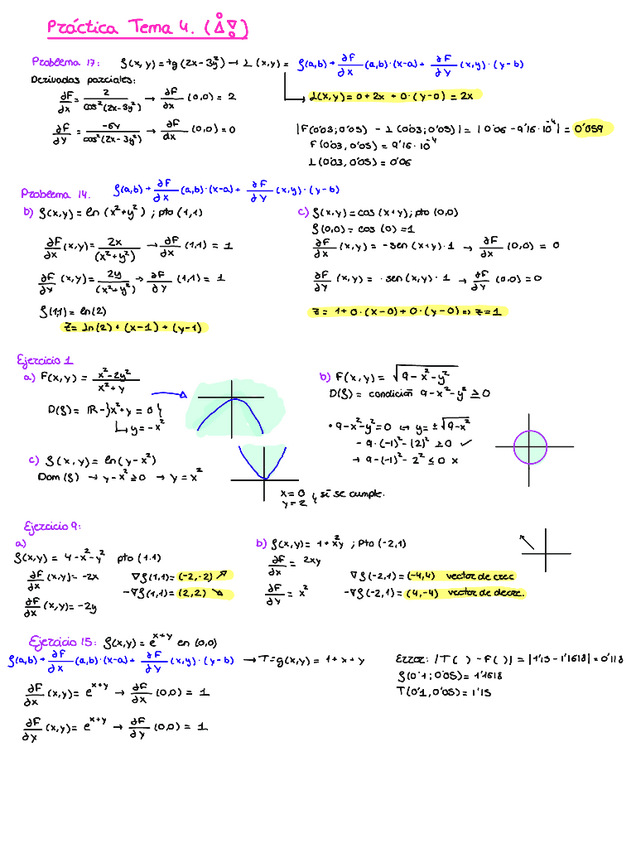 Práctica Tema 4.
Problema 17: f(x,y) = tg(2x-3y²) → L(x,y) = f(a,b) + ∂F/∂x (a,b)·(x-a) + ∂F/∂y (x,y)·(y-b)
Derivadas parciales:
∂F/∂x = 2/cos²(2x-3y²) → ∂F/∂x (0,0) = 2
L(x,y) = 0 + 2x + 0·(y-0) = 2x
∂F/∂y = -6y/cos²(2x-3y²) → ∂F/∂x (0,0) = 0
|F(0'03,0'05) - L(0'03,0'05)| = |0'06 - 9'16·10⁻⁴| = 0'059
F(0'03,0'05) = 9'16·10⁻⁴
L(0'03,0'05) = 0'06
Problema 14. f(a,b) + ∂F/∂x (a,b)·(x-a) + ∂F/∂y (x,y)·(y-b)
b) f(x,y) = ln(x²+y²) ; pto (1,1)
∂F/∂x (x,y) = 2x/(x²+y²) → ∂F/∂x (1,1) = 1
∂F/∂y (x,y) = 2y/(x²+y²) → ∂F/∂y (1,1) = 1
f(1,1) = ln(2)
z = ln(2) + (x-1) + (y-1)
c) f(x,y) = cos(x+y); pto (0,0)
f(0,0) = cos(0) = 1
∂F/∂x (x,y) = -sen(x+y)·1 → ∂F/∂x (0,0) = 0
∂F/∂y (x,y) = -sen(x,y)·1 → ∂F/∂y (0,0) = 0
z = 1+0·(x-0)+0·(y-0) => z = 1
Ejercicio 1
a) F(x,y) = x²-2y²/x²+y
D(f) = ℝ-{x²+y = 0}
↳ y = -x²
b) F(x,y) = √9-x²-y²
D(f) = condición 9-x²-y² ≥ 0
• 9-x²-y² = 0 ↔ y = ±√9-x²
- 9-(-1)²-(2)² ≥ 0 ✓
→ 9-(-1)²-2² ≤ 0 x
c) f(x,y) = ln(y-x²)
Dom(f) → y-x² ≥ 0 → y = x²
x = 0
y = 2 } sí se cumple.
Ejercicio 9:
a)
f(x,y) = 4-x²-y² pto (1,1)
∂F/∂x (x,y) = -2x
∂F/∂x (x,y) = -2y
∇f(1,1) = (-2,-2) ↗
-∇f(1,1) = (2,2) ↘
b) f(x,y) = 1+x²y ; Pto (-2,1)
∂F/∂x = 2xy
∂F/∂y = x²
∇f(-2,1) = (-4,4) vector de crec
-∇f(-2,1) = (4,-4) vector de decre.
Ejercicio 15: f(x,y) = e^(x+y) en (0,0)
f(a,b) + ∂F/∂x (a,b)·(x-a) + ∂F/∂y (x,y)·(y-b) → T = g(x,y) = 1+x+y
∂F/∂x (x,y) = e^(x+y) → ∂F/∂x (0,0) = 1
∂F/∂y (x,y) = e^(x+y) → ∂F/∂y (0,0) = 1
Error: |T( ) - F( )| = |1'15-1'1618| = 0'118
f(0'1;0'05) = 1'1618
T(0'1,0'05) = 1'15